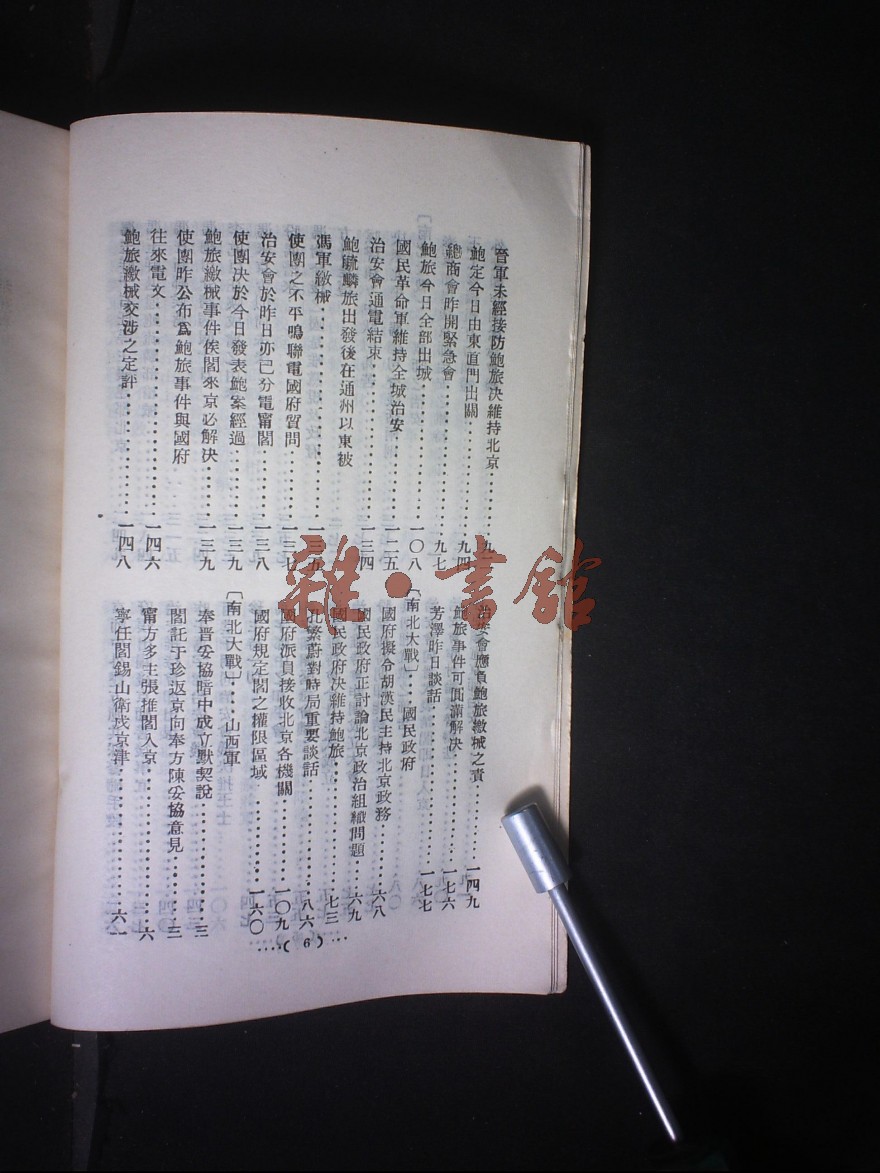 晉軍未經接防鮑旅決維持北京
鮑定今日由東直門出關……九四
總商會昨開緊急會……九七
鮑旅今日全部出城……一〇八
國民革命軍維持全城治安……一二五
治安會通電結束……一三四
鮑毓麟旅出發後在通州以東被
馮軍繳械……一三五
使團之不平鳴聯電國府質問……一三七
治安會於昨日亦已分電甯閻……一三八
使團决於今日發表鮑案經過……一三九
鮑旅繳械事件俟閻來京必解決……一三九
使團昨公布爲鮑旅事件與國府
往來電文……一四六
鮑旅繳械交涉之定評……一四八
治安會應負鮑旅繳械之責……一四九
鮑旅事件可圓滿解決……一七六
芳澤昨日談話……一七七
〔南北大戰〕……國民政府
國府擬令胡漢民主持北京政務……六八
國民政府正討論北京政治組織問題……六九
國民政府决維持鮑旅……七三
孔繁蔚對時局重要談話……八六
國府派員接收北京各機關……一〇九
國府規定閻之權限區域……一六〇
〔南北大戰〕……山西軍
奉晋妥協暗中成立默契說……三
閻託于珍返京向奉方陳妥協意見……三
甯方多主張推閻入京……六
寧任閻錫山衛戍京津……六一
…(6)…
雜·書館